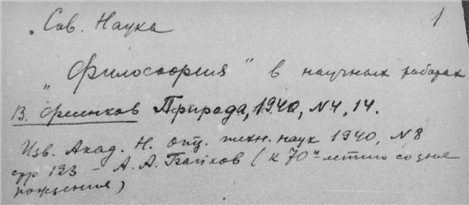 1
Сов. Наука
„Философия" в научных работах
В. Фесенков Природа, 1940, N4, 14.
Изв. Акад. Н. отд. техн. наук 1940, N8
стр 123 - А. А. Байков (к 70ти летию со дня
рождения)